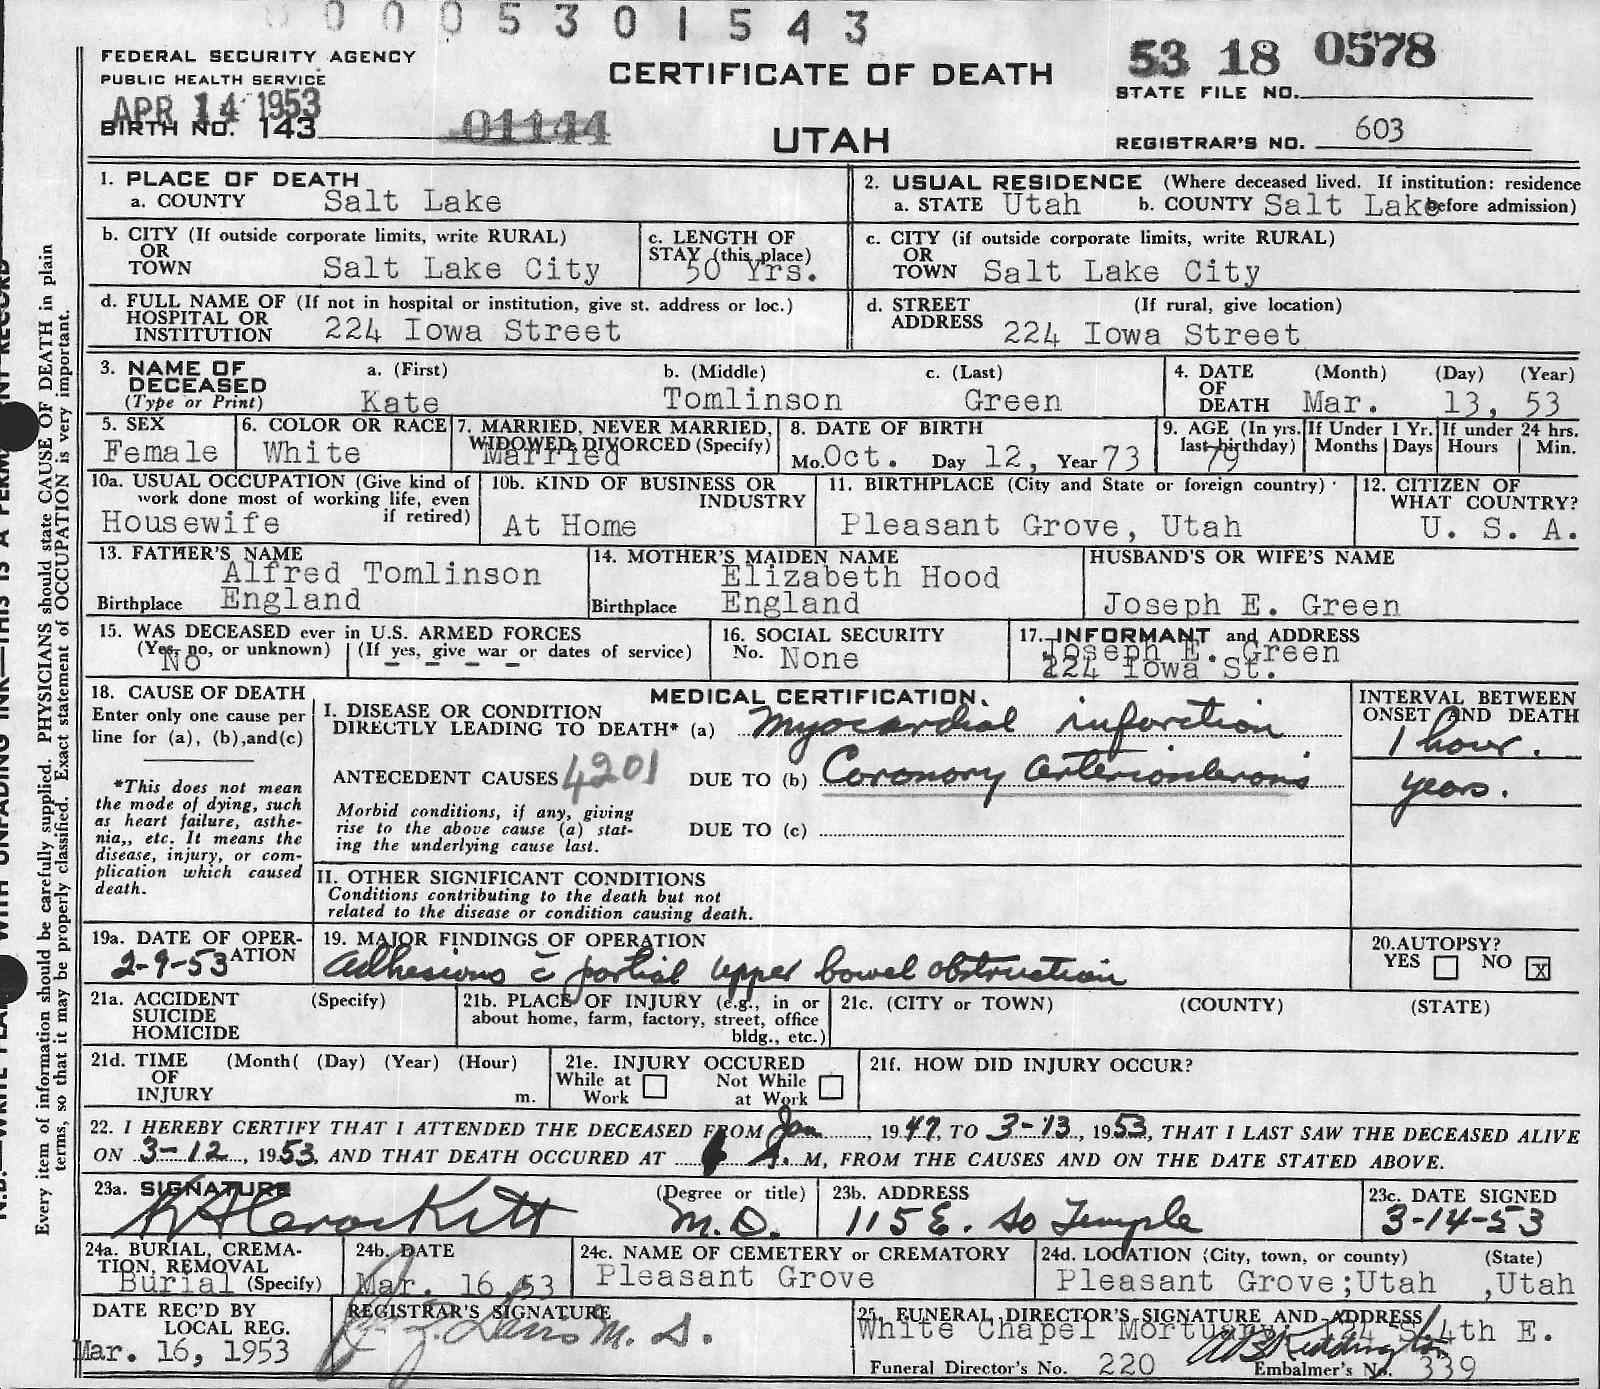 0 0 0 5 3 0 1 5 4 3
FEDERAL SECURITY AGENCY
PUBLIC HEALTH SERVICE
APR 14 1953
BIRTH NO. 143
01144
CERTIFICATE OF DEATH
UTAH
53 18 0578
STATE FILE NO.
REGISTRAR'S NO. 603
1. PLACE OF DEATH
a. COUNTY Salt Lake
2. USUAL RESIDENCE (Where deceased lived. If institution: residence before admission)
a. STATE Utah b. COUNTY Salt Lake
b. CITY (If outside corporate limits, write RURAL)
OR
TOWN Salt Lake City
c. LENGTH OF
STAY (this place)
50 Yrs.
c. CITY (if outside corporate limits, write RURAL)
OR
TOWN Salt Lake City
d. FULL NAME OF (If not in hospital or institution, give st. address or loc.)
HOSPITAL OR
INSTITUTION 224 Iowa Street
d. STREET (If rural, give location)
ADDRESS 224 Iowa Street
3. NAME OF
DECEASED
(Type or Print)
a. (First) b. (Middle) c. (Last)
Kate Tomlinson Green
4. DATE (Month) (Day) (Year)
OF
DEATH Mar. 13, 53
5. SEX
Female
6. COLOR OR RACE
White
7. MARRIED, NEVER MARRIED,
WIDOWED, DIVORCED (Specify)
Married
8. DATE OF BIRTH
Mo. Oct. Day 12, Year 73
9. AGE (In yrs.
last birthday)
79
If Under 1 Yr.
Months Days
If under 24 hrs.
Hours Min.
10a. USUAL OCCUPATION (Give kind of
work done most of working life, even
if retired)
Housewife
10b. KIND OF BUSINESS OR
INDUSTRY
At Home
11. BIRTHPLACE (City and State or foreign country)
Pleasant Grove, Utah
12. CITIZEN OF
WHAT COUNTRY?
U. S. A.
13. FATHER'S NAME
Alfred Tomlinson
Birthplace England
14. MOTHER'S MAIDEN NAME
Elizabeth Hood
Birthplace England
HUSBAND'S OR WIFE'S NAME
Joseph E. Green
15. WAS DECEASED ever in U.S. ARMED FORCES
(Yes, no, or unknown) (If yes, give war or dates of service)
No - - - -
16. SOCIAL SECURITY
No. None
17. INFORMANT and ADDRESS
Joseph E. Green
224 Iowa St.
18. CAUSE OF DEATH
Enter only one cause per
line for (a), (b), and (c)
*This does not mean
the mode of dying, such
as heart failure, asthe-
nia,, etc. It means the
disease, injury, or com-
plication which caused
death.
MEDICAL CERTIFICATION.
I. DISEASE OR CONDITION
DIRECTLY LEADING TO DEATH* (a) Myocardial infarction
ANTECEDENT CAUSES 4201 DUE TO (b) Coronary Arteriosclerosis
Morbid conditions, if any, giving
rise to the above cause (a) stat-
ing the underlying cause last.
DUE TO (c)
II. OTHER SIGNIFICANT CONDITIONS
Conditions contributing to the death but not
related to the disease or condition causing death.
INTERVAL BETWEEN
ONSET AND DEATH
1 hour.
years.
19a. DATE OF OPER-
ATION
2-9-53
19. MAJOR FINDINGS OF OPERATION
Adhesions c̄ partial upper bowel obstruction
20. AUTOPSY?
YES NO X
21a. ACCIDENT (Specify)
SUICIDE
HOMICIDE
21b. PLACE OF INJURY (e.g., in or
about home, farm, factory, street, office
bldg., etc.)
21c. (CITY or TOWN) (COUNTY) (STATE)
21d. TIME (Month( (Day) (Year) (Hour)
OF
INJURY m.
21e. INJURY OCCURED
While at Work Not While at Work
21f. HOW DID INJURY OCCUR?
22. I HEREBY CERTIFY THAT I ATTENDED THE DECEASED FROM Jan, 1947, TO 3-13, 1953, THAT I LAST SAW THE DECEASED ALIVE
ON 3-12, 1953, AND THAT DEATH OCCURED AT M, FROM THE CAUSES AND ON THE DATE STATED ABOVE.
23a. SIGNATURE (Degree or title)
Crockett M.D.
23b. ADDRESS
115 E. So Temple
23c. DATE SIGNED
3-14-53
24a. BURIAL, CREMA-
TION, REMOVAL
Burial (Specify)
24b. DATE
Mar. 16,53
24c. NAME OF CEMETERY or CREMATORY
Pleasant Grove
24d. LOCATION (City, town, or county) (State)
Pleasant Grove;Utah ,Utah
DATE REC'D BY
LOCAL REG.
Mar. 16, 1953
REGISTRAR'S SIGNATURE
25. FUNERAL DIRECTOR'S SIGNATURE AND ADDRESS
White Chapel Mortuary 4th E.
Funeral Director's No. 220 Embalmer's No. 339
Every item of information should be carefully supplied. PHYSICIANS should state CAUSE OF DEATH in plain
terms, so that it may be properly classified. Exact statement of OCCUPATION is very important.